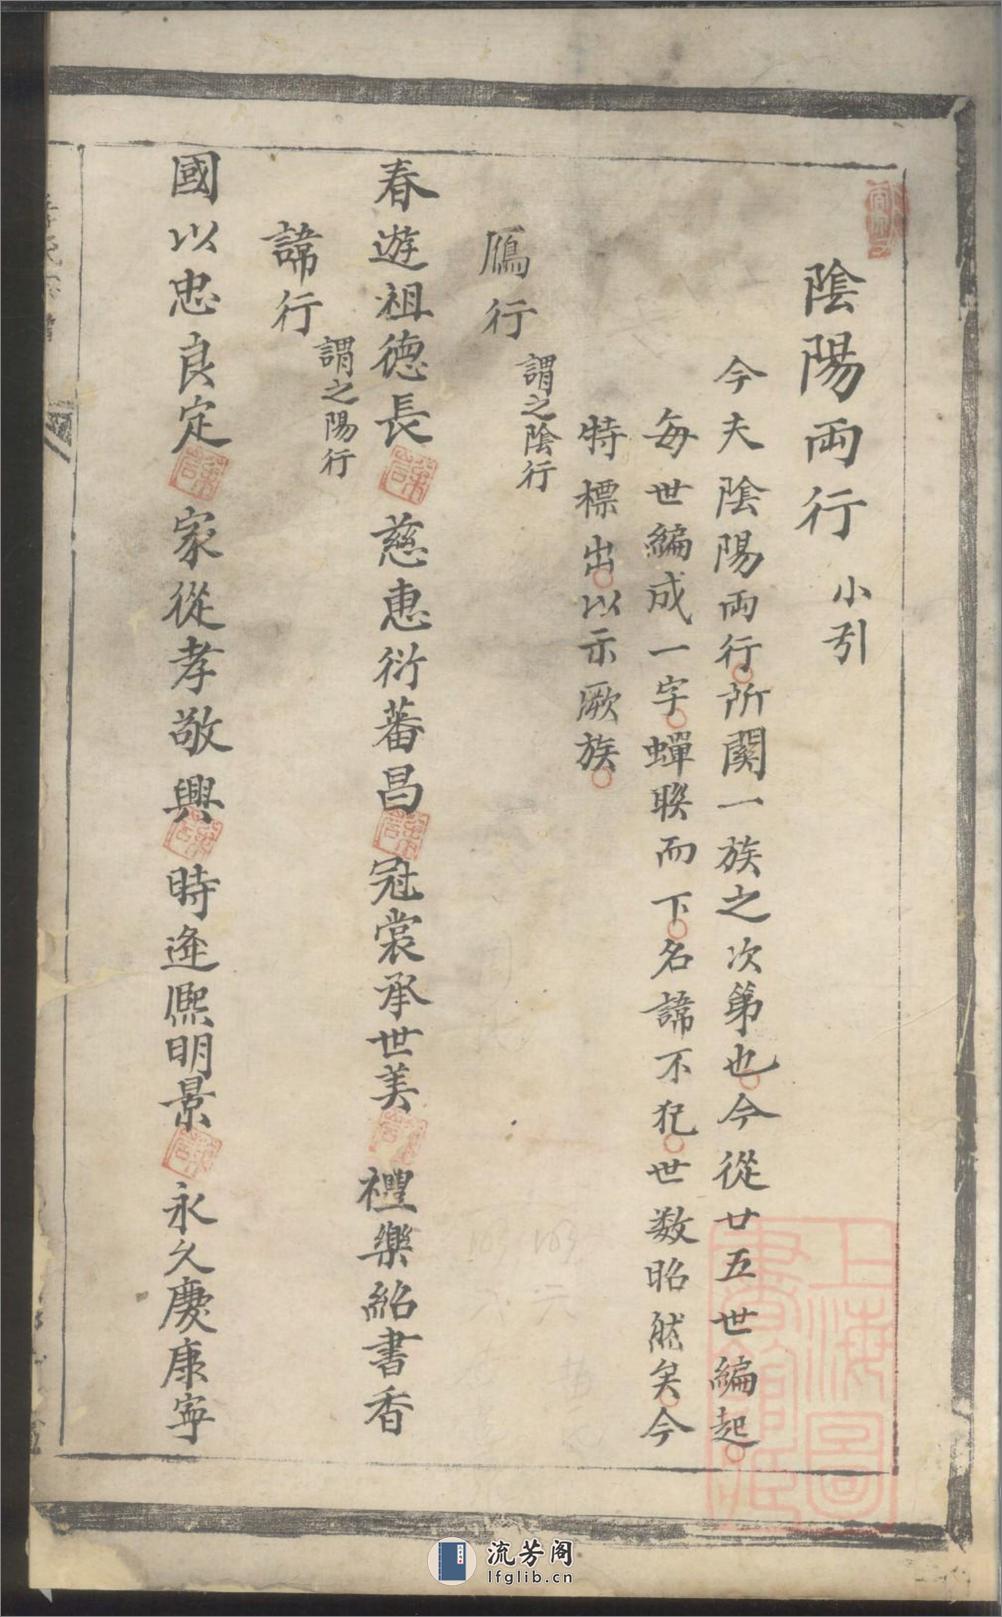 陰陽両行 小引
今夫陰陽両行所関一族之次第也今從廿五世編起
每世編成一字蟬聨而下名諱不犯世数昭然矣今
特標出以示厥族
鴈行 謂之陰行
春遊祖德長 慈惠衍蕃昌 冠裳承世美 禮樂紹書香
諱行 謂之陽行
國以忠良定 家從孝敬興 時逢熈明景 永久慶康寧
上海圖書館藏
流芳阁
lfglib.cn